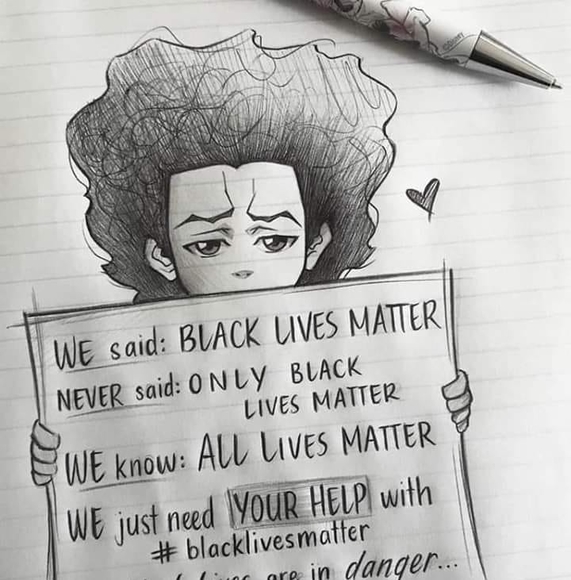 WE said: BLACK LIVES MATTER
NEVER said: ONLY BLACK
LIVES MATTER
WE know: ALL LIVES MATTER
WE just need YOUR HELP with
# blacklivesmatter
lives are in danger...